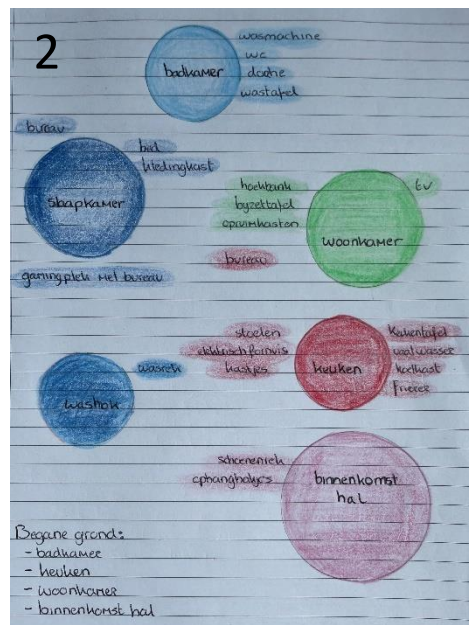 2
wasmachine
wc
badkamer
douche
wastafel
bureau
bed
kledingkast
slaapkamer
gamingplek met bureau
hoekbank
tv
byzettafel
opruimkasten
woonkamer
bureau
stoelen
elektrisch fornuis
kastjes
keuken
keukentafel
vaatwasser
koelkast
friezer
wasrek
washok
schoenenrek
ophanghaakjes
binnenkomst
hal
Begane grond:
- badkamer
- keuken
- woonkamer
- binnenkomst hal